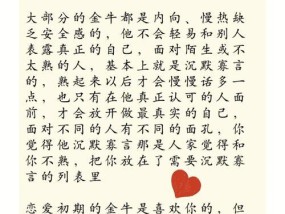 大部分的金牛都是内向、慢热缺
乏安全感的，他不会轻易和别人
表露真正的自己，面对陌生或不
太熟的人，基本上就是沉默寡言
的，熟起来以后才会慢慢话多一
点，也只有在他真正认可的人面
前，才会放开做最真实的自己，
面对不同的人有不同的面孔，你
觉得他沉默寡言那是人家觉得和
你不熟，把你放在了需要沉默寡
言的列表里
恋爱初期的金牛是喜欢你的，但